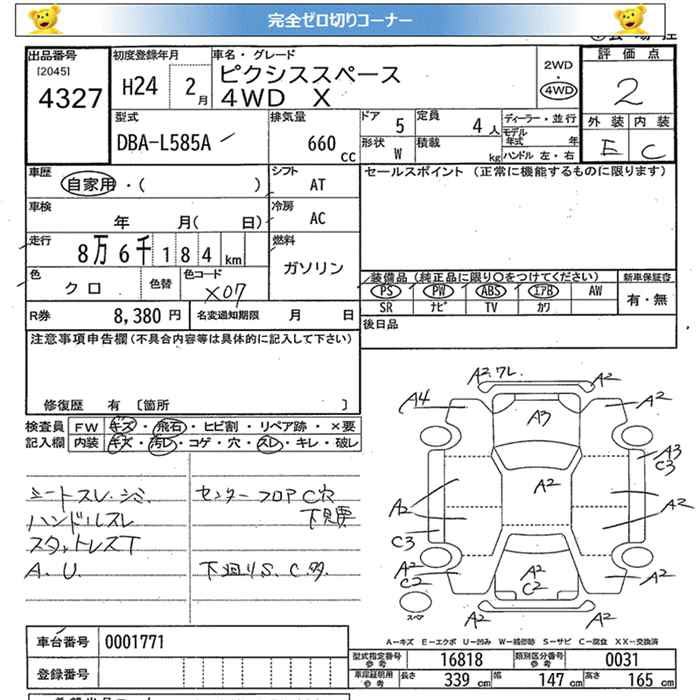 完全ゼロ切りコーナー
出品番号
[2045]
4327
初度登録年月
H24 2月
車名・グレード
ピクシススペース
4WD X
2WD
・
4WD
評価点
2
外装 内装
E C
型式
DBA-L585A
排気量
660 cc
ドア
5
定員
4人
形状
W
積載
kg
ディーラー・並行
モデル年式 年
ハンドル 左・右
車歴
自家用・( )
シフト
AT
セールスポイント (正常に機能するものに限ります)
車検
年 月( 日)
冷房
AC
走行
8万6千184km
燃料
ガソリン
色
クロ
色替
色コード
X07
装備品 (純正品に限り○をつけてください)
新車保証書
PS PW ABS エアB AW
有・無
SR ナビ TV カワ
R券 8,380 円
名変通知期限 月 日
後日品
注意事項申告欄(不具合内容等は具体的に記入して下さい)
修復歴 有 〔箇所 〕
検査員記入欄
FW キズ・飛石・ヒビ割・リペア跡・×要
内装 キズ・汚レ・コゲ・穴・スレ・キレ・破レ
シートスレ、シミ
ハンドルスレ
スタットレスT
A.U.
センターフロアC穴
下見要
下廻りS.C.多
A2.ワレ A2
A4 A3 A2
A3
C3
A2 A2
A2
C3
A2
C2
A2
C2
A2
スペア
A2 A2
A-キズ E-エクボ U-凹み W-補修跡 S-サビ C-腐食 XX-交換済
車台番号 0001771
型式指定番号 参考 16818
類別区分番号 参考 0031
登録番号
車庫証明用 参考
長さ 339 cm
幅 147 cm
高さ 165 cm